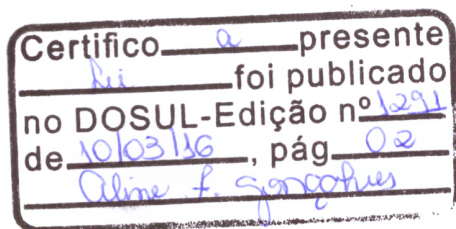 Certifico a presente
Lei foi publicado
no DOSUL-Edição nº 1291
de 10/03/16, pág 02
Aline F. Gonçalves